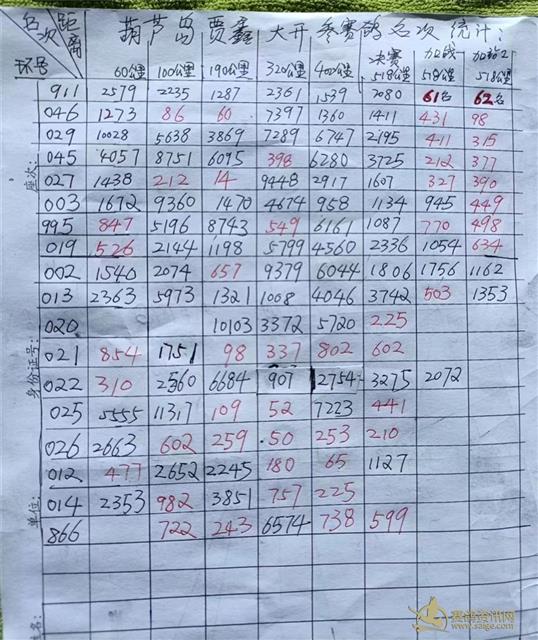 名次 距离 葫芦岛贾鑫 大开参赛鸽名次统计:
环号 60公里 100公里 190公里 320公里 400公里 决赛518公里 加战518公里 加站2 518公里
911 2579 2235 1287 2361 1539 2080 61名 62名
046 1273 86 60 7397 1360 1411 431 98
029 10028 5638 3869 7289 6747 2195 411 315
045 4057 8751 6095 398 6280 3725 212 377
027 1438 212 14 9448 2917 1607 327 390
003 1672 9360 1470 4674 958 1134 945 449
995 847 5196 8743 549 6161 1087 770 498
019 526 2144 1198 5799 4560 2336 1054 634
002 1540 2074 657 9379 6044 1806 1756 1162
013 2363 5973 1321 1008 4046 3742 503 1353
020 10103 3372 5720 225
021 854 1751 98 337 802 602
022 310 2560 6684 907 2754 3275 2072
025 5555 11317 109 52 7223 441
026 2663 602 259 50 253 210
012 477 2652 2245 180 65 1127
014 2353 982 3851 757 225
866 722 243 6574 738 599
座次:
身份证号:
单位:
赛鸽资讯网
www.saige.com